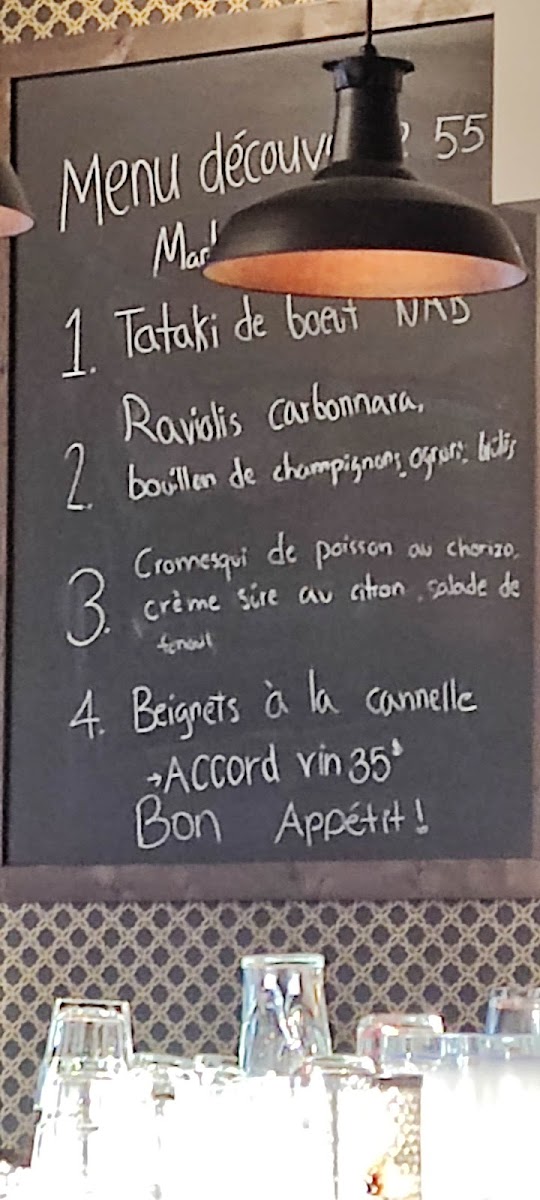 Menu découv 55
1. Tataki de boeuf
Raviolis carbonnara,
2. bouillon de champignons,
Cromesqui de poisson au chorizo,
3. crème sûre au citron, salade de
fenouil
4. Beignets à la cannelle
→Accord vin 35$
Bon Appétit!